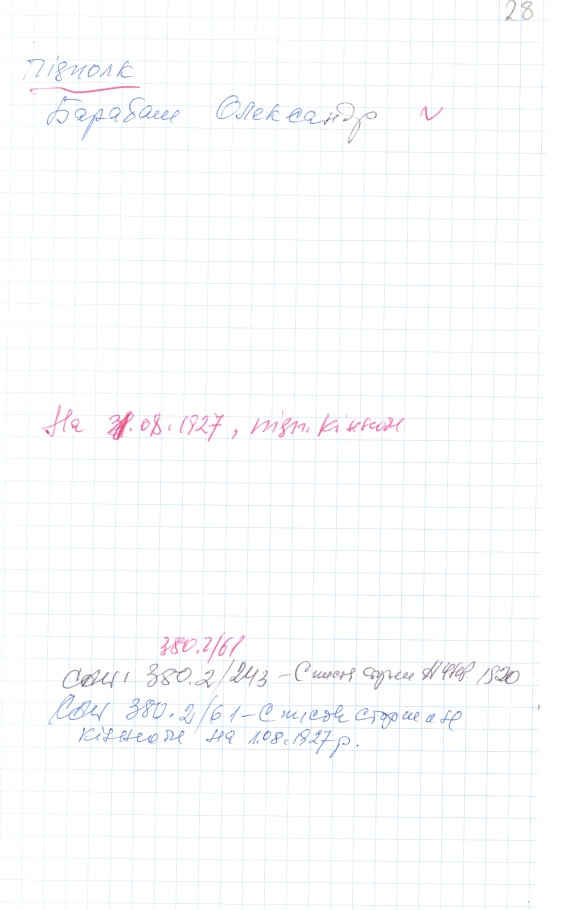 28
Підполк
Барабаш Олександр v
На 31.08.1927, підп. кінноти
380.2/61
спи 380.2/243 - Список старшин 1920
Спи 380.2/61 - Список старшин
кінноти на 1.08.1927 р.